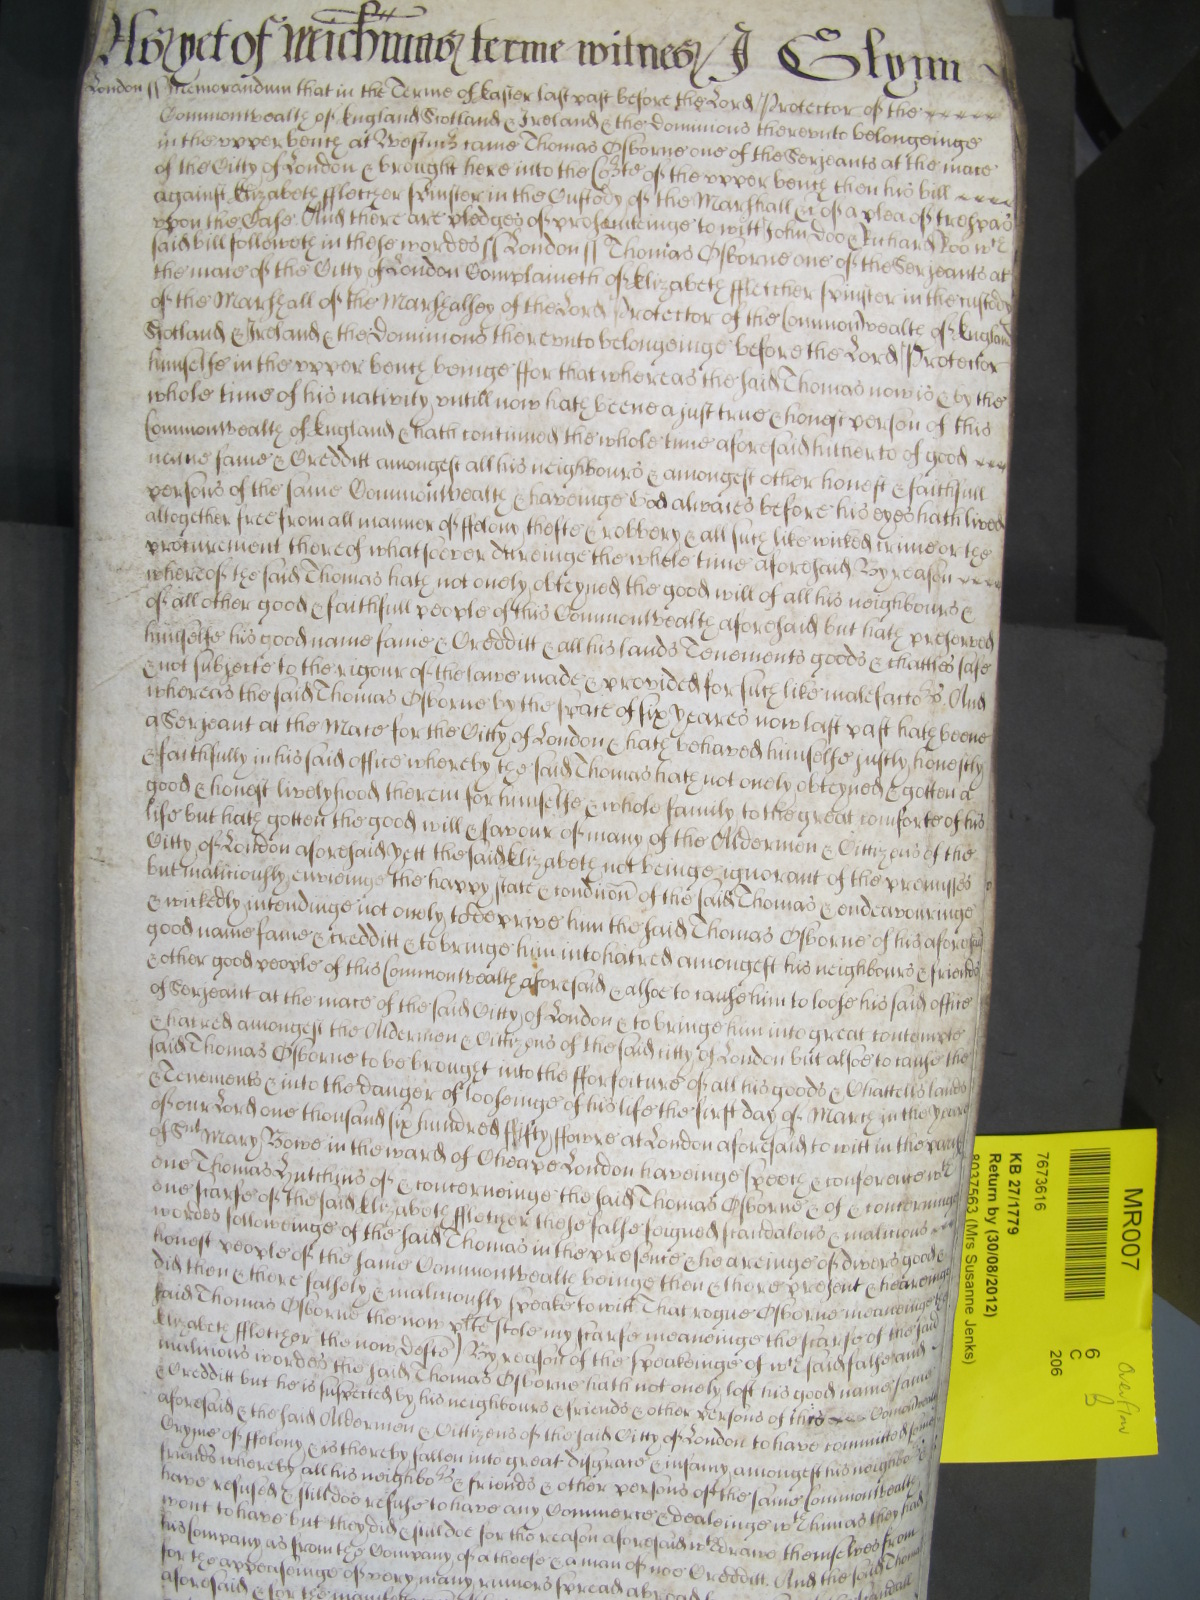 As yet of Mich'mas terme witnes J Glynn
London ss Memorandum that in the Terme of Easter last past before the Lord Protector of the
Commonwealth of England Scotland & Ireland & the dominions thereunto belongeinge
in the upper bench at Westm'r came Thomas Osborne one of the Serjeants at the mace
of the Citty of London & brought here into the Co'rte of the upper bench then his bill
against Elizabeth ffletcher spinster in the Custody of the Marshall &c of a plea of trespas
upon the Case. And there are pledges of prosecuteinge to witt John Doo & Richard Roo w'ch
said bill followeth in these wordes ss London ss Thomas Osborne one of the Serjeants at
the mace of the Citty of London Complaineth of Elizabeth ffletcher spinster in the custody
of the Marshall of the Marshalsey of the Lord Protector of the Commonwealth of England
Scotland & Ireland & the Dominions thereunto belongeinge before the Lord Protector
himselfe in the upper bench beinge ffor that whereas the said Thomas now is & by the
whole time of his nativity untill now hath beene a just true & honest person of this
Commonwealth of England & hath continued the whole time aforesaid hitherto of good
name fame & Credditt amongest all his neighbours & amongest other honest & faithfull
persons of the same Commonwealth & haveinge God alwaies before his eyes hath lived
altogether free from all manner of ffelony thefte & robbery & all such like wicked crime or the
procurement thereof whatsoever dureinge the whole time aforesaid By reason
whereof the said Thomas hath not onely obteyned the good will of all his neighbours &
of all other good & faithfull people of this Commonwealth aforesaid but hath preserved
himselfe his good name fame & Credditt & all his lands Tenements goods & chattles safe
& not subjecte to the rigour of the lawe made & provided for such like malefacto'rs. And
whereas the said Thomas Osborne by the space of six yeares now last past hath beene
a Serjeant at the Mace for the Citty of London & hath behaved himselfe justly honestly
& faithfully in his said office whereby the said Thomas hath not onely obteyned & gotten a
good & honest livelyhood therein for himselfe & whole family to the great comforte of his
life but hath gotten the good will & favour of many of the Aldermen & Cittizens of the
Citty of London aforesaid yett the said Elizabeth not beinge ignorant of the premisses
but maliciously envieinge the happy state & condition of the said Thomas & endeavouringe
& wickedly intendinge not onely to deprive him the said Thomas Osborne of his aforesaid
good name fame & creditt & to bringe him into hatred amongest his neighbours & friends
& other good people of this Commonwealth aforesaid & alsoe to cause him to loose his said office
of Serjeant at the mace of the said Citty of London & to bringe him into great contempte
& hatred amongest the Aldermen & Cittizens of the said citty of London but alsoe to cause the
said Thomas Osborne to be brought into the fforfeiture of all his goods & Chattells lands
& Tenements & into the danger of looseinge of his life the first day of March in the yeare
of our Lord one thousand six hundred ffifty ffowre at London aforesaid to witt in the parish
of S'nt Mary Bowe in the ward of Cheape London haveinge speech & conference w'th
one Thomas Hutchins of & concerneinge the said Thomas Osborne & of & concerninge
one scarfe of the said Elizabeth ffletcher these false feigned scandalous & malitious
wordes followeinge of the said Thomas in the presence & heareinge of divers good &
honest people of the same Commonwealth beinge then & there present & heareinge
did then & there falsely & malitiously speake to witt That rogue Osborne meaneinge the
said Thomas Osborne the now pl'te stole my scarfe meaneinge the scarfe of the said
Elizabeth ffletcher the now Defte) By reason of the speakeinge of w'ch said false and
malitious wordes the said Thomas Osborne hath not onely lost his good name fame
& Credditt but he is suspected by his neighbours & friends & other persons of this Comonwealth
aforesaid & the said Aldermen & Cittizens of the said Citty of London to have committed some
Cryme of ffelony & is thereby fallen into great disgrace & infamy amongest his neighbo'rs &
friends whereby all his neighbo'rs & friends & other persons of the same Commonwealth
have refused & still doe refuse to have any Commerce & dealeinge w'th him as they had
wont to have but they did & still doe for the reason aforesaid w'thdrawe themselves from
his Company as from the Company of a theefe & a man of noe Credditt. And the said Thomas
for the appeaseinge of very many rumors spread abroad
aforesaid & for the
MR007
76736116
KB 27/1779
Return by (30/08/2012)
8037563 (Mrs Susanne Jenks)
6
C
206
Overflow